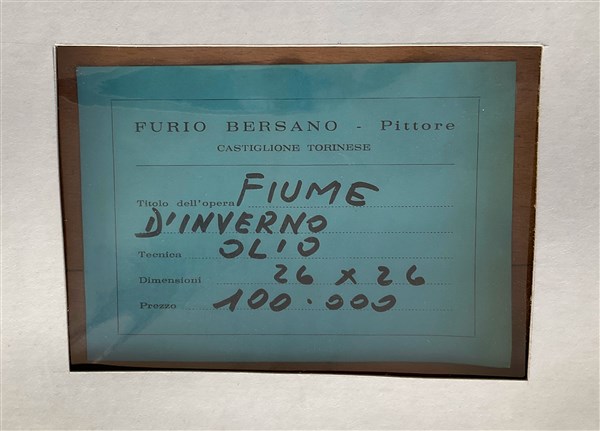 FURIO BERSANO - Pittore
CASTIGLIONE TORINESE
Titolo dell'opera FIUME
D'INVERNO
Tecnica OLIO
Dimensioni 26 x 26
Prezzo 100.000